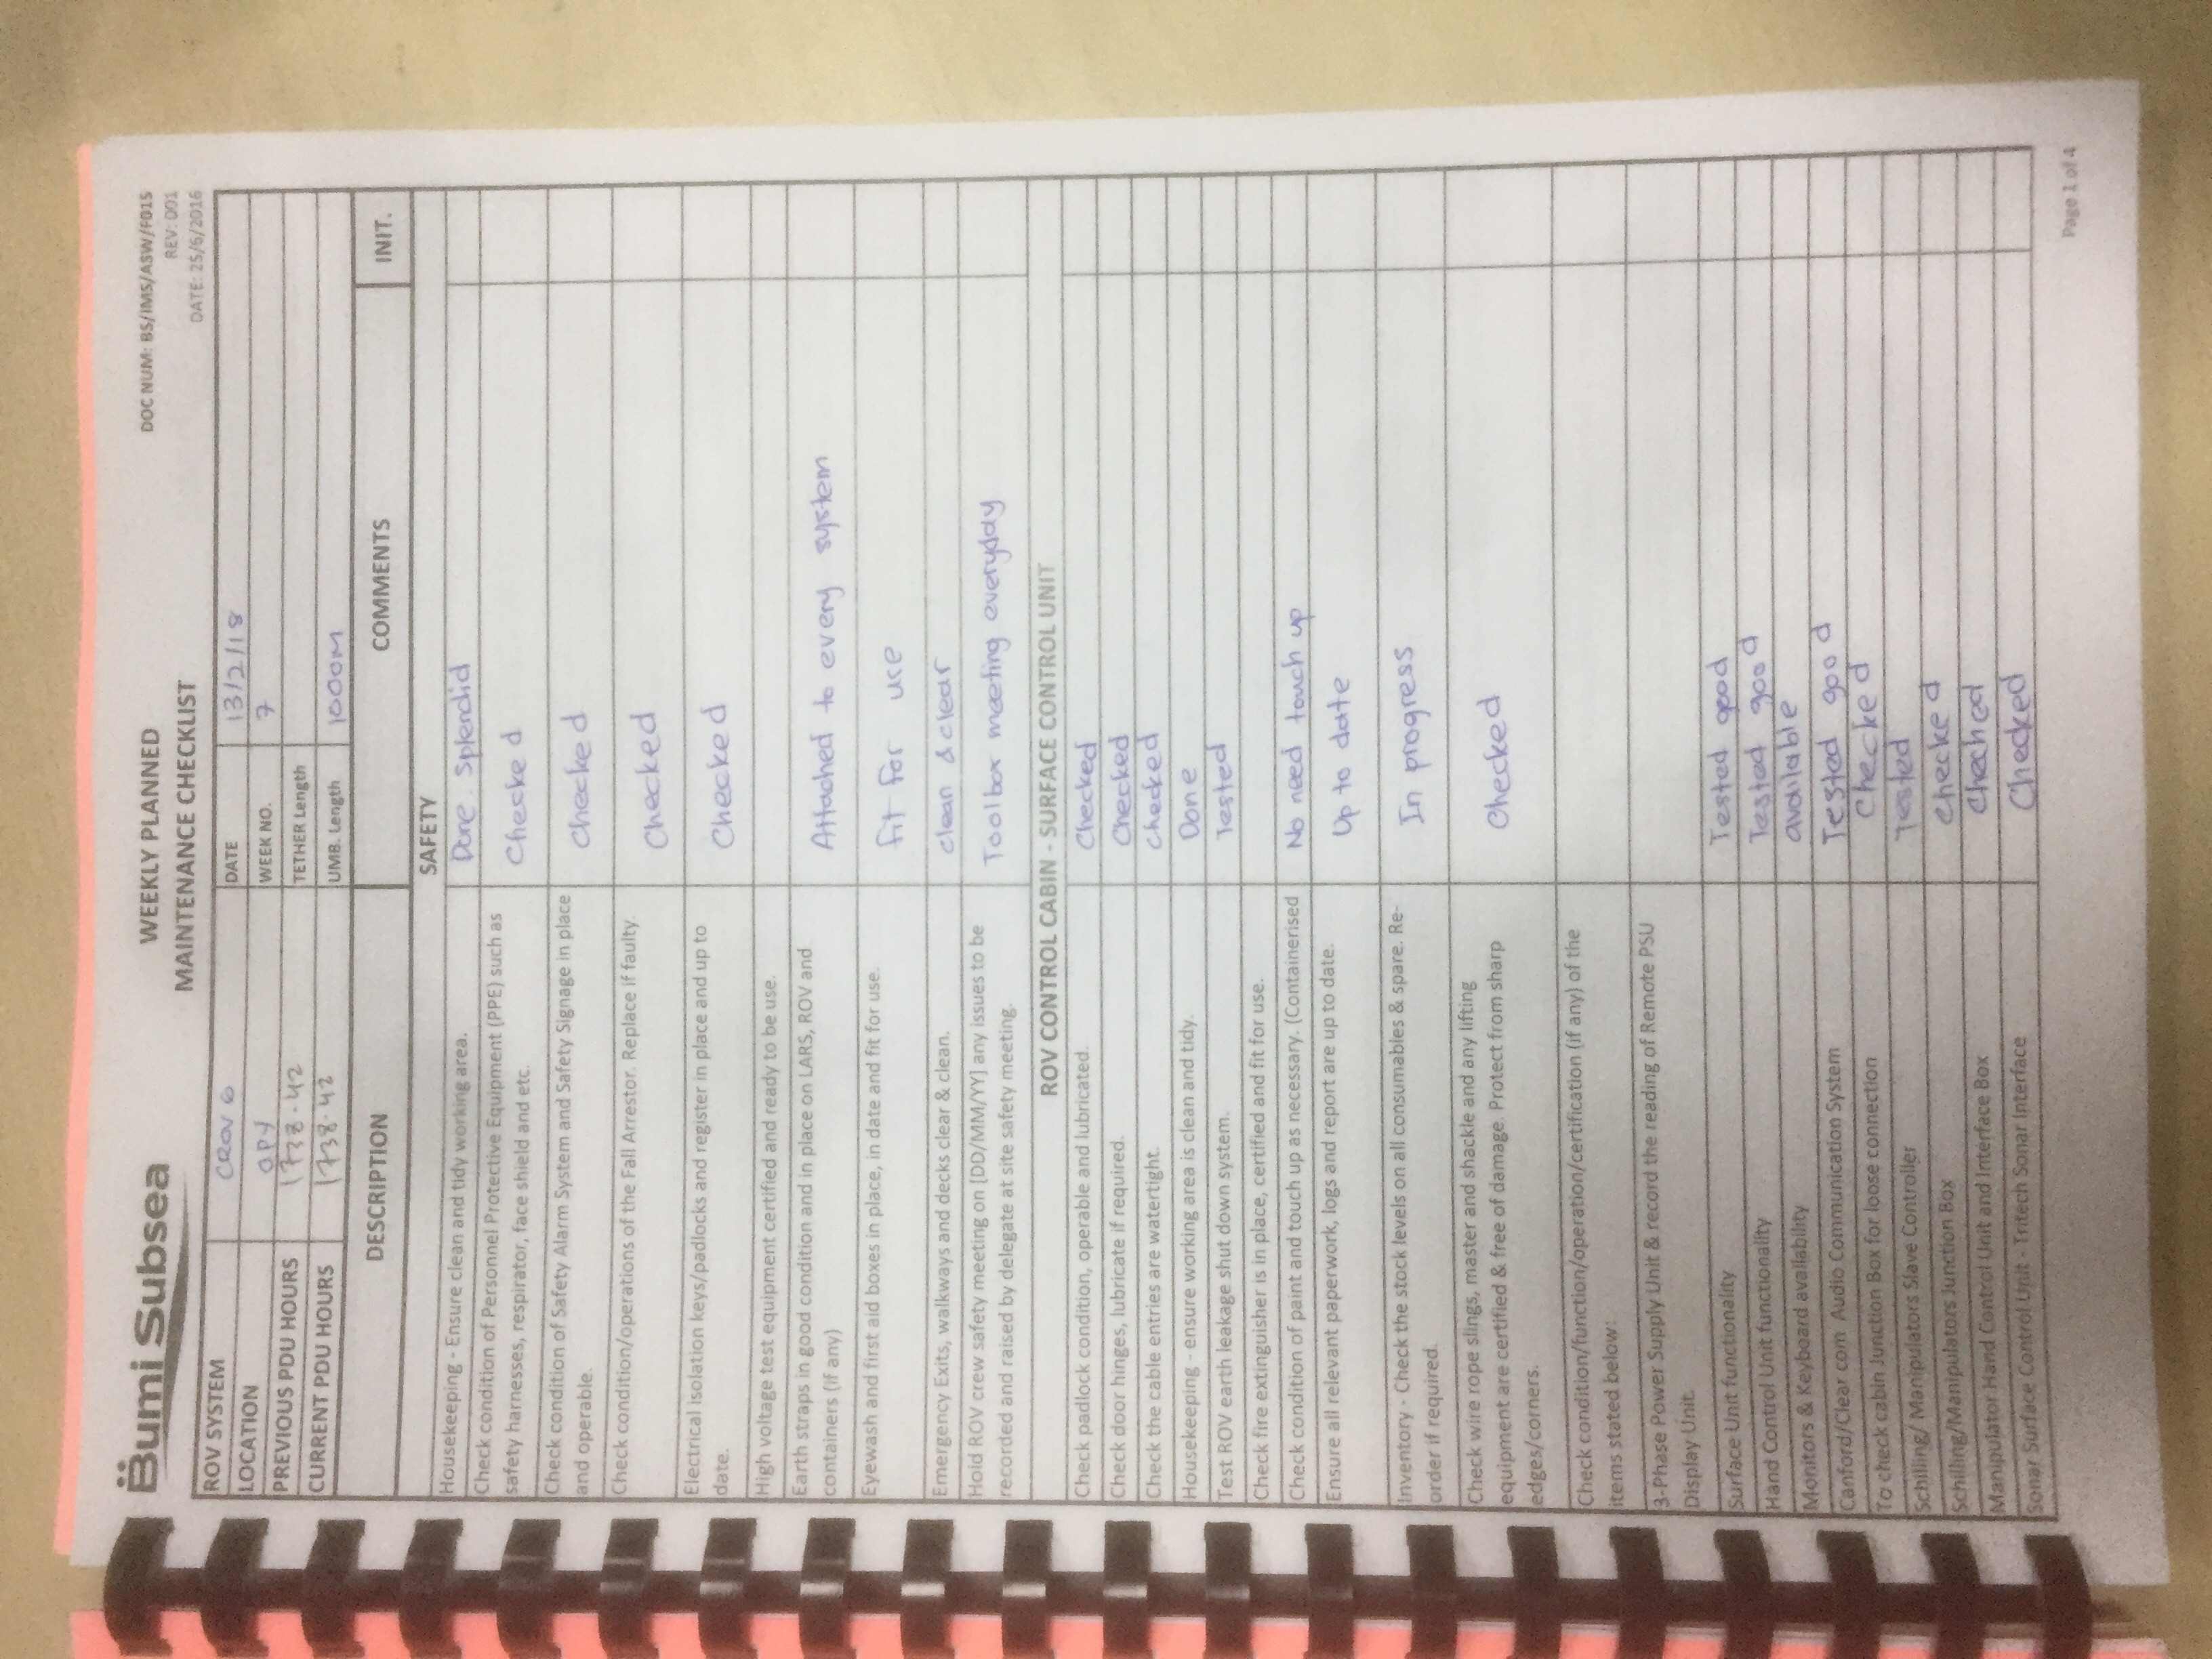 Bumi Subsea
WEEKLY PLANNED
MAINTENANCE CHECKLIST
DOC NUM: BS/IMS/ASW/F015
REV: 001
DATE: 25/6/2016
ROV SYSTEM CROV 6 DATE 13/2/18
LOCATION OPY WEEK NO. 7
PREVIOUS PDU HOURS 1738.42 TETHER Length
CURRENT PDU HOURS 1738.42 UMB. Length 1000M
DESCRIPTION COMMENTS INIT.
SAFETY
Housekeeping - Ensure clean and tidy working area. Done. Splendid
Check condition of Personnel Protective Equipment (PPE) such as
safety harnesses, respirator, face shield and etc. Checked
Check condition of Safety Alarm System and Safety Signage in place
and operable. Checked
Check condition/operations of the Fall Arrestor. Replace if faulty. Checked
Electrical isolation keys/padlocks and register in place and up to
date. Checked
High voltage test equipment certified and ready to be use.
Earth straps in good condition and in place on LARS, ROV and
containers (if any) Attached to every system
Eyewash and first aid boxes in place, in date and fit for use. fit for use
Emergency Exits, walkways and decks clear & clean. clean & clear
Hold ROV crew safety meeting on [DD/MM/YY] any issues to be
recorded and raised by delegate at site safety meeting. Toolbox meeting everyday
ROV CONTROL CABIN - SURFACE CONTROL UNIT
Check padlock condition, operable and lubricated. Checked
Check door hinges, lubricate if required. Checked
Check the cable entries are watertight. Checked
Housekeeping - ensure working area is clean and tidy. Done
Test ROV earth leakage shut down system. Tested
Check fire extinguisher is in place, certified and fit for use.
Check condition of paint and touch up as necessary. (Containerised No need touch up
Ensure all relevant paperwork, logs and report are up to date. Up to date
Inventory - Check the stock levels on all consumables & spare. Re-
order if required. In progress
Check wire rope slings, master and shackle and any lifting
equipment are certified & free of damage. Protect from sharp
edges/corners. Checked
Check condition/function/operation/certification (if any) of the
items stated below:
3-Phase Power Supply Unit & record the reading of Remote PSU
Display Unit.
Surface Unit functionality Tested good
Hand Control Unit functionality Tested good
Monitors & Keyboard availability available
Canford/Clear com Audio Communication System Tested good
To check cabin Junction Box for loose connection Checked
Schilling/ Manipulators Slave Controller Tested
Schilling/Manipulators Junction Box Checked
Manipulator Hand Control Unit and Interface Box Cheched
Sonar Surface Control Unit - Tritech Sonar Interface Checked
Page 1 of 4